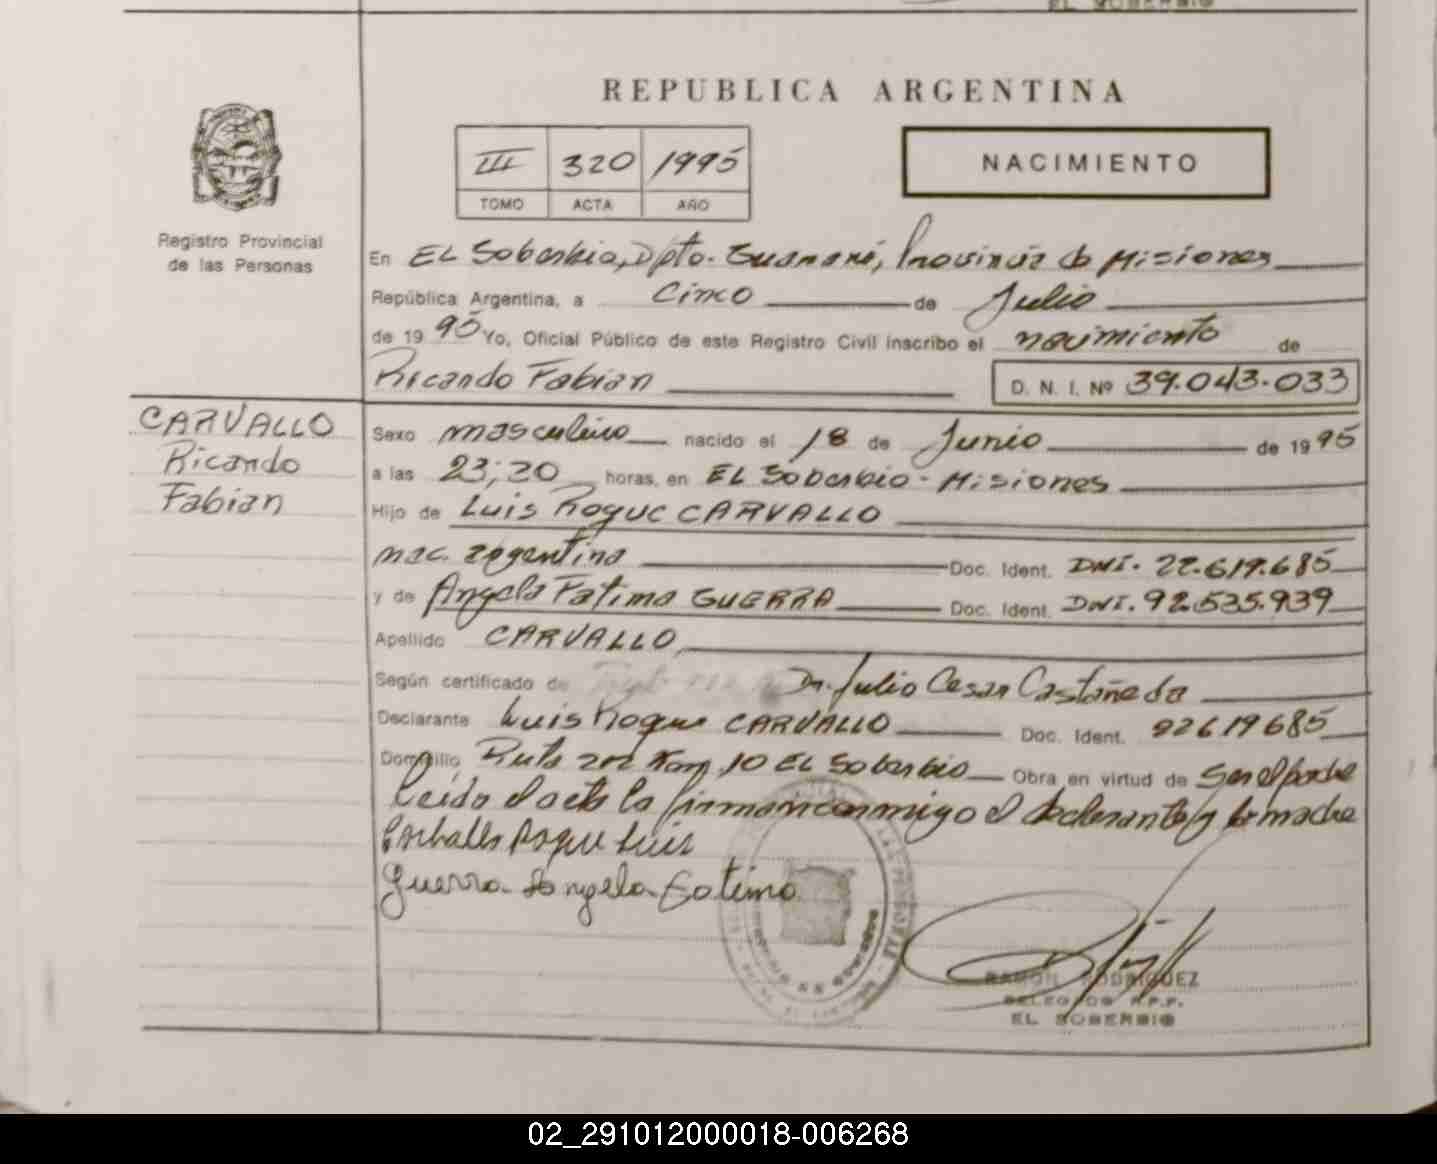 EL SOBERBIO
REPUBLICA ARGENTINA
III 320 1995
TOMO ACTA AÑO
NACIMIENTO
Registro Provincial
de las Personas
En EL Soberbio, Dpto. Guarani, Provincia de Misiones
República Argentina, a Cinco de Julio
de 1995 Yo, Oficial Público de este Registro Civil inscribo el nacimiento de
Ricardo Fabian D. N. I. Nº 39.043.033
CARVALLO
Ricardo
Fabian
Sexo masculino nacido el 18 de Junio de 1995
a las 23;20 horas, en EL Soberbio - Misiones
Hijo de Luis Roque CARVALLO
nac. argentina Doc. Ident. DNI. 22.619.685
y de Angela Fatima GUERRA Doc. Ident. DNI. 92.535.939
Apellido CARVALLO
Según certificado de Dr. Julio Cesar Castañeda
Declarante Luis Roque CARVALLO Doc. Ident. 22619685
Domicilio Ruta Km 10 EL Soberbio Obra en virtud de Ser el padre
Leida el acta la firman conmigo el declarante y la madre
Carballo Roque Luis
Guerra Angela Fatima
RAMON RODRIGUEZ
DELEGADO R.P.P.
EL SOBERBIO
02_291012000018-006268